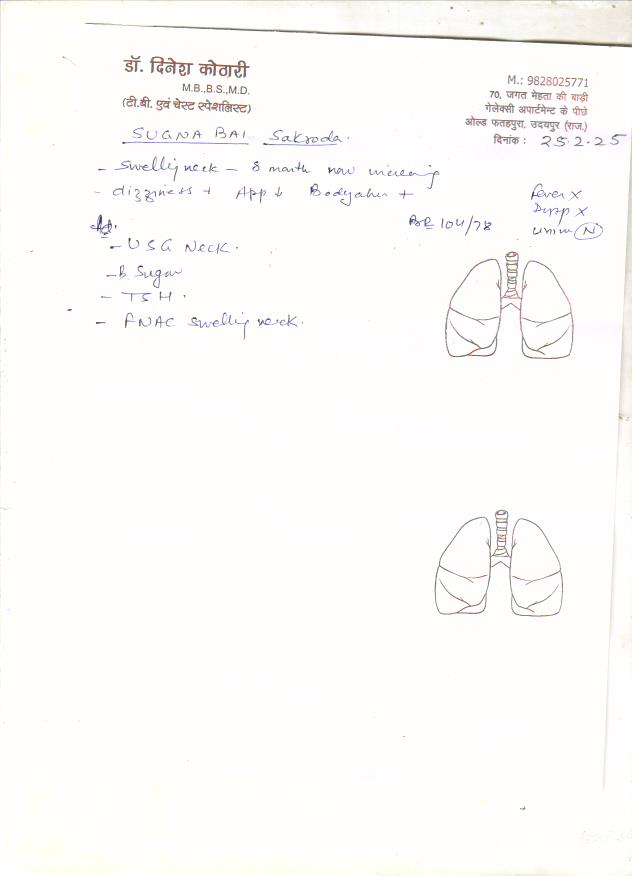 डॉ. दिनेश कोठारी
M.B.,B.S.,M.D.
(टी.बी. एवं चेस्ट स्पेशलिस्ट)
M.: 9828025771
70, जगत मेहता की बाड़ी
गेलेक्सी अपार्टमेन्ट के पीछे
ओल्ड फतहपुरा, उदयपुर (राज.)
दिनांक : 25.2.25
SUGNA BAI Sakroda.
- Swelling neck - 8 month now increasing
- dizziness + App ↓ Bodyaches +
Fever X
X
N
BP 104/78
- USG Neck.
- B Sugar
- TSH.
- FNAC swelling neck.